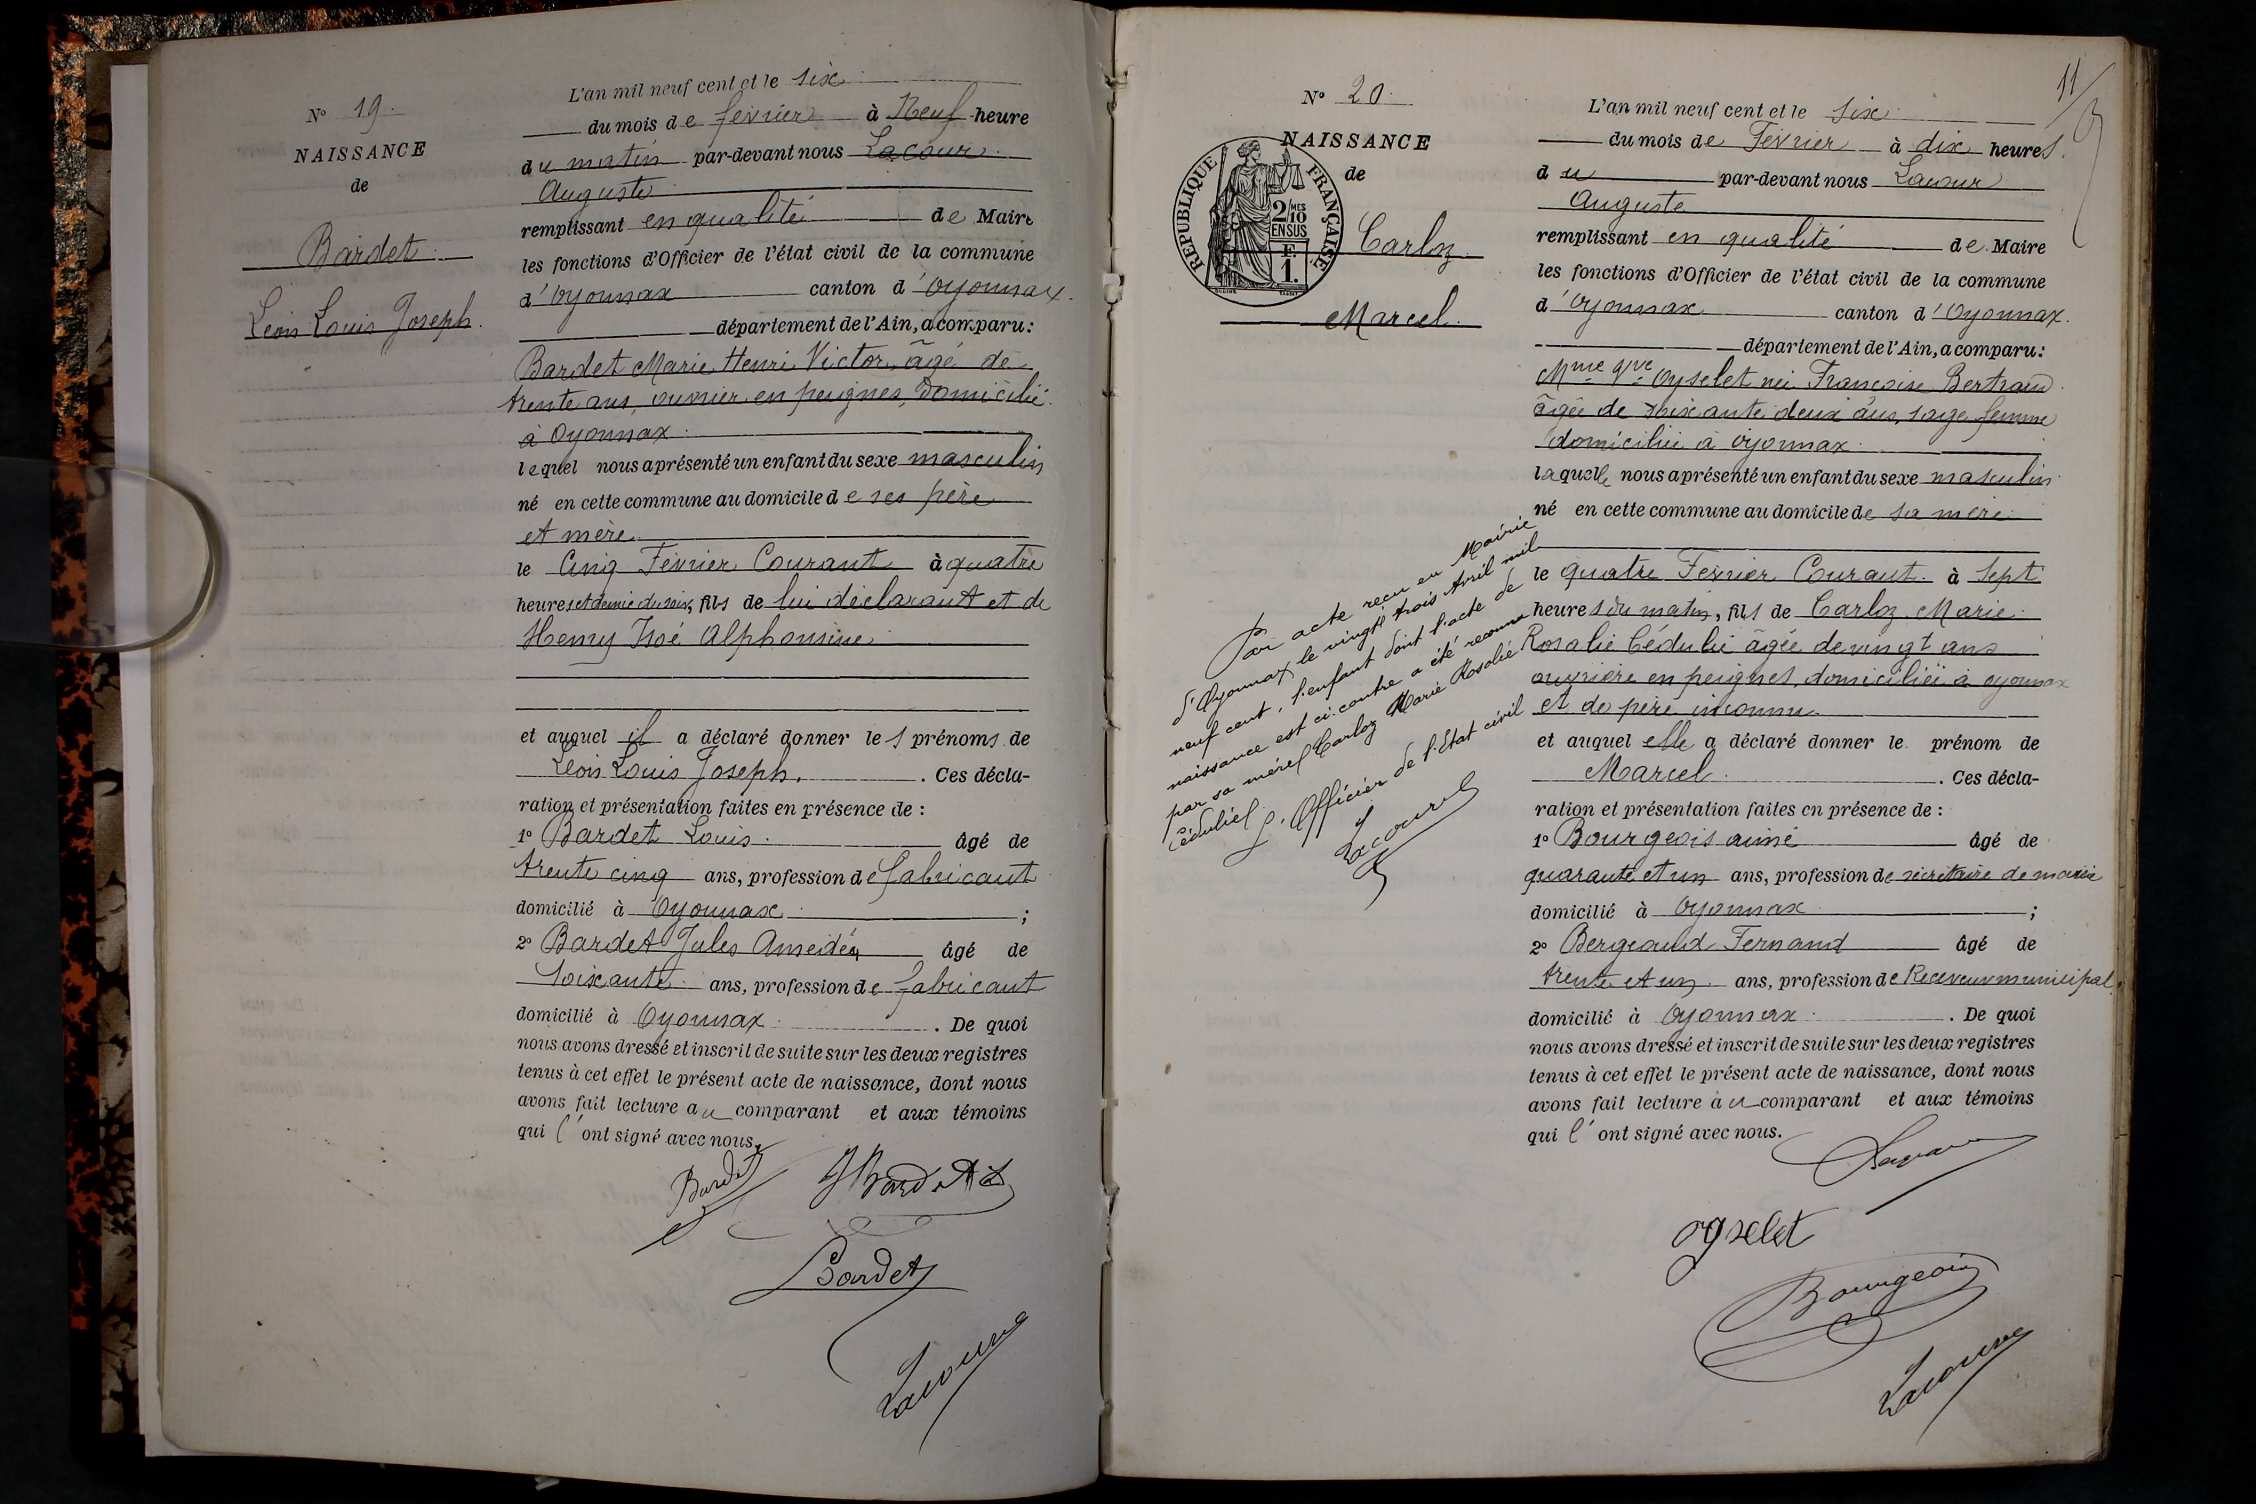 Nº 19.
NAISSANCE
de
Bardet
Léon Louis Joseph.
L'an mil neuf cent et le six
du mois de février à Neuf heure
du matin par-devant nous Lacour
Auguste
remplissant en qualité de Maire
les fonctions d'Officier de l'état civil de la commune
d'Oyonnax canton d'Oyonnax.
département de l'Ain, a comparu:
Bardet Marie Henri Victor, âgé de
trente ans, ouvrier en peignes, domicilié
à Oyonnax.
lequel nous a présenté un enfant du sexe masculin
né en cette commune au domicile de ses père
et mère
le Cinq Février Courant à quatre
heures et demie du soir, fils de lui déclarant et de
Henry Zoé Alphonsine
et auquel il a déclaré donner les prénoms de
Léon Louis Joseph. . Ces décla-
ration et présentation faites en présence de :
1º Bardet Louis. âgé de
trente cinq ans, profession de fabricant
domicilié à Oyonnax ;
2º Bardet Jules Amédée âgé de
soixante ans, profession de fabricant
domicilié à Oyonnax . De quoi
nous avons dressé et inscrit de suite sur les deux registres
tenus à cet effet le présent acte de naissance, dont nous
avons fait lecture au comparant et aux témoins
qui l'ont signé avec nous.
Bardet
J Bardet
Bardet
Lacour
11
Nº 20.
NAISSANCE
de
REPUBLIQUE FRANÇAISE
2/10 MES
EN SUS
F.
1.
Carloz
Marcel.
L'an mil neuf cent et le six
du mois de Février à dix heures.
du par-devant nous Lacour
Auguste
remplissant en qualité de Maire
les fonctions d'Officier de l'état civil de la commune
d'Oyonnax canton d'Oyonnax.
département de l'Ain, a comparu:
Mme Vve Oyselet née Françoise Bertrand
âgée de soixante deux ans, sage femme
domiciliée à Oyonnax.
laquelle nous a présenté un enfant du sexe masculin
né en cette commune au domicile de sa mère
le quatre Février Courant. à sept
heures du matin, fils de Carloz Marie
Rosalie Cédulie âgée de vingt ans
ouvrière en peignes, domiciliée à Oyonnax
et de père inconnu
et auquel elle a déclaré donner le prénom de
Marcel . Ces décla-
ration et présentation faites en présence de :
1º Bourgeois aimé âgé de
quarante et un ans, profession de secrétaire de mairie
domicilié à Oyonnax ;
2º Bergeaud Fernand âgé de
trente et un ans, profession de Receveur municipal.
domicilié à Oyonnax . De quoi
nous avons dressé et inscrit de suite sur les deux registres
tenus à cet effet le présent acte de naissance, dont nous
avons fait lecture au comparant et aux témoins
qui l'ont signé avec nous.
oyselet
Bourgeois
Lacour
Par acte reçu en Mairie
d'Oyonnax le vingt trois Avril mil
neuf cent, l'enfant dont l'acte de
naissance est ci-contre a été reconnu
par sa mère (Carloz Marie Rosalie
Cédulie)
L'Officier de l'Etat civil
Lacour